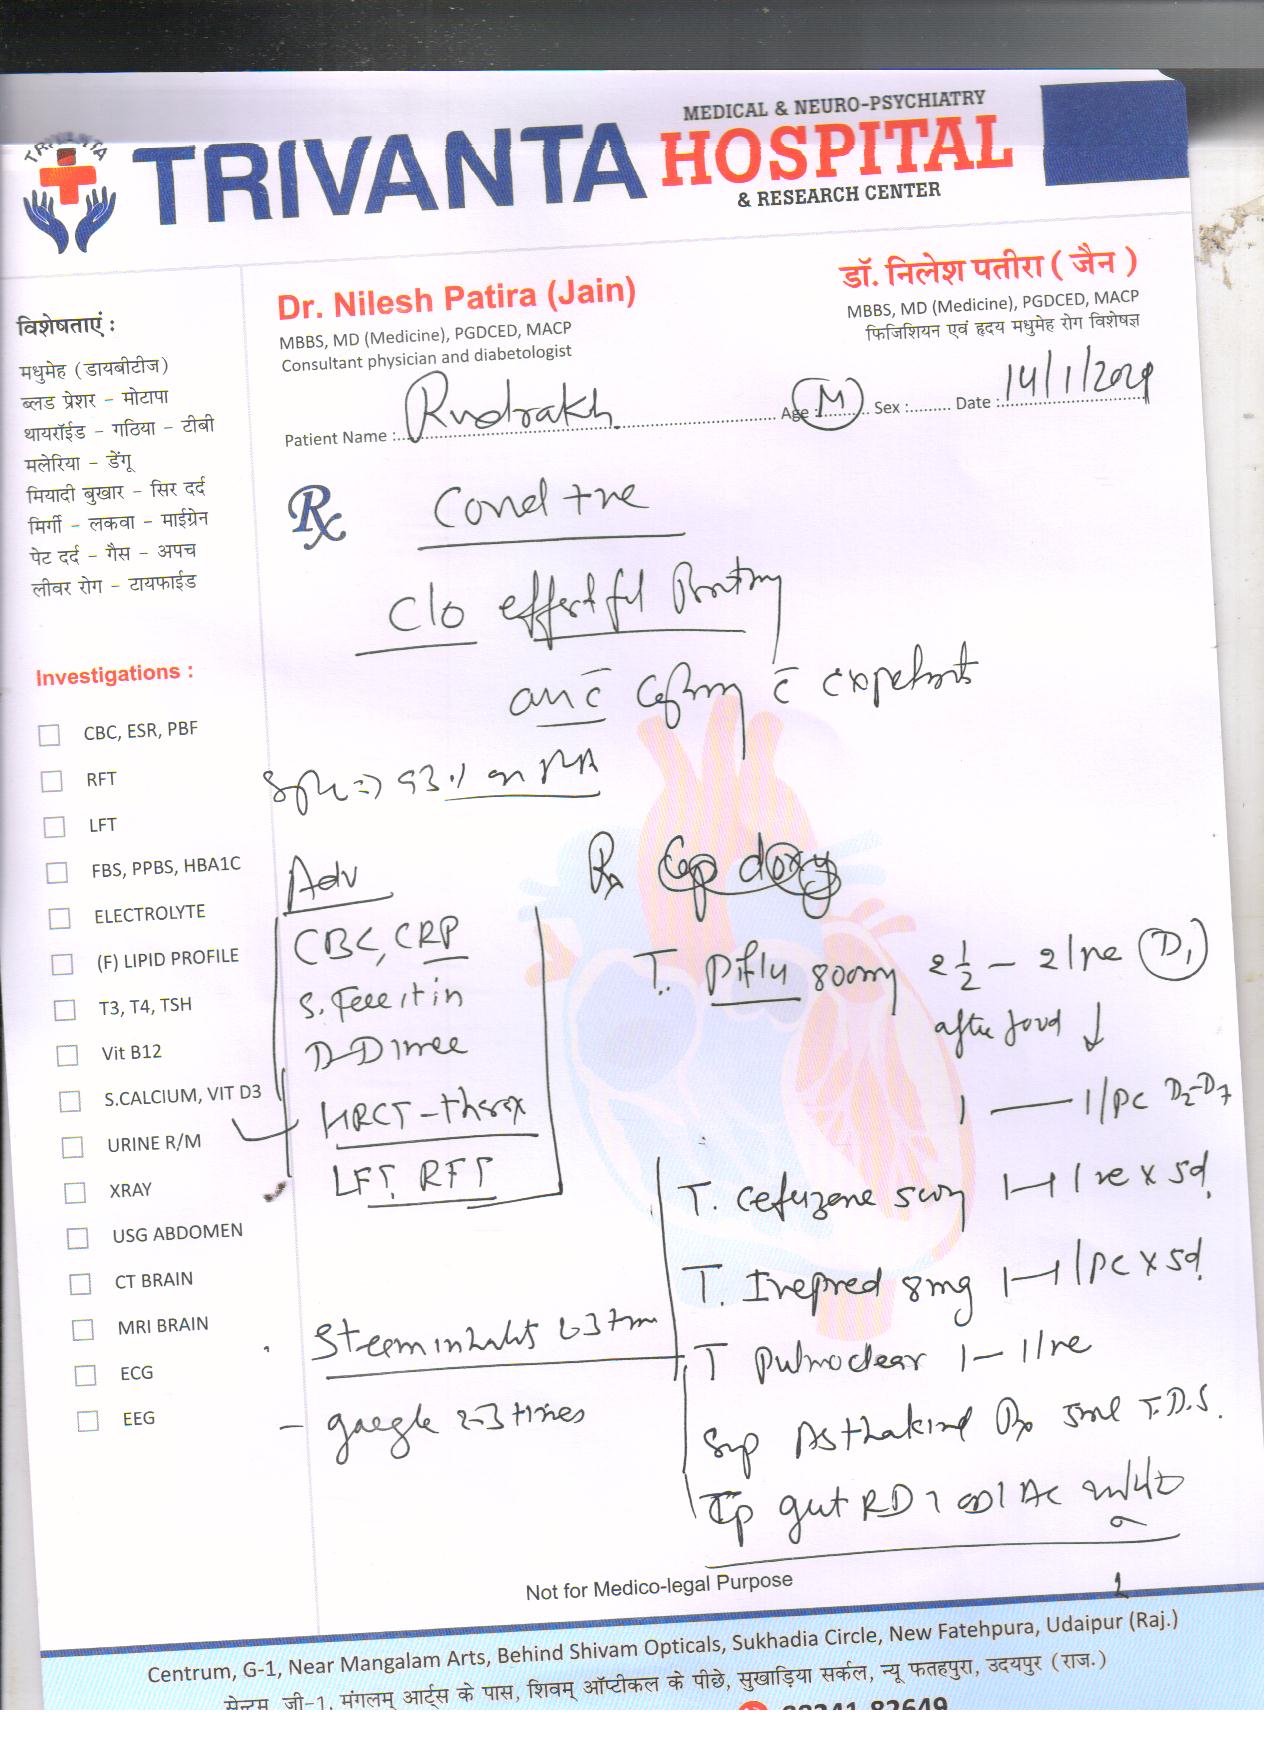 TRIVANTA
TRIVANTA
MEDICAL & NEURO-PSYCHIATRY
HOSPITAL
& RESEARCH CENTER
Dr. Nilesh Patira (Jain)
MBBS, MD (Medicine), PGDCED, MACP
Consultant physician and diabetologist
डॉ. निलेश पतीरा ( जैन )
MBBS, MD (Medicine), PGDCED, MACP
फिजिशियन एवं हृदय मधुमेह रोग विशेषज्ञ
Patient Name : Rudraksh Age : M Sex : Date : 14/1/202
विशेषताएं :
मधुमेह (डायबीटीज)
ब्लड प्रेशर - मोटापा
थायरॉईड - गठिया - टीबी
मलेरिया - डेंगू
मियादी बुखार - सिर दर्द
मिर्गी - लकवा - माईग्रेन
पेट दर्द - गैस - अपच
लीवर रोग - टायफाईड
Investigations :
CBC, ESR, PBF
RFT
LFT
FBS, PPBS, HBA1C
ELECTROLYTE
(F) LIPID PROFILE
T3, T4, TSH
Vit B12
S.CALCIUM, VIT D3
URINE R/M
XRAY
USG ABDOMEN
CT BRAIN
MRI BRAIN
ECG
EEG
Rx
+ve
C/o
c̄ c̄
=> 93 % on RA
Adv
CBC, CRP
S. Ferritin
D-Dimer
HRCT - thorax
LFT, RFT
Steam 2-3
- gargle 2-3 times
Rx Cap doxy
T. Piflu 800mg 2 1/2 - 2 (D1)
after food ↓
1 — 1/PC D2-D7
T. Cefuzene 500mg 1—1 x 5d.
T. Ivepred 8mg 1—1/PC x 5d.
T Pulmoclear 1 - 1
Syp Asthakind Dx 5ml T.D.S.
gut RD 1 AC
Not for Medico-legal Purpose
Centrum, G-1, Near Mangalam Arts, Behind Shivam Opticals, Sukhadia Circle, New Fatehpura, Udaipur (Raj.)
सेन्ट्रम, जी-1, मंगलम् आर्ट्स के पास, शिवम् ऑप्टीकल के पीछे, सुखाड़िया सर्कल, न्यू फतहपुरा, उदयपुर (राज.)